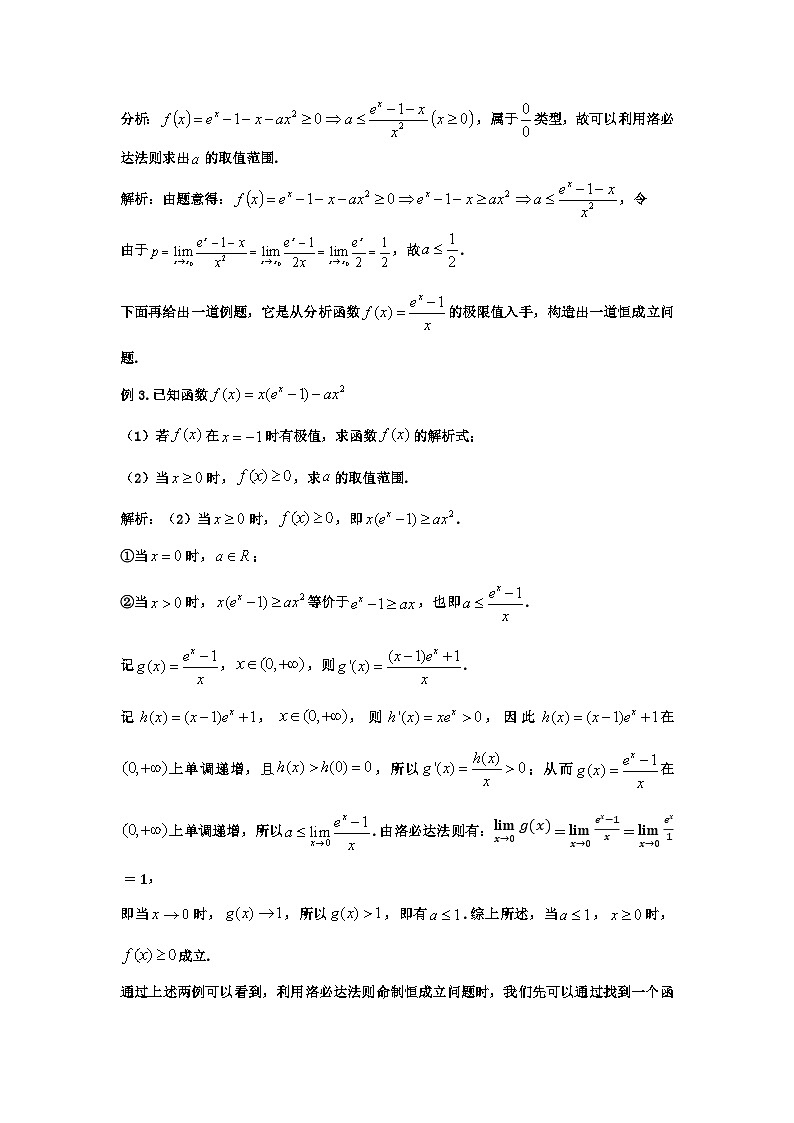 分析：f(x)=e^x−1−x−ax²≥0⇒a≤(e^x−1−x)/x²(x≥0)，属于0/0类型，故可以利用洛必
达法则求出a 的取值范围.
解析：由题意得：f(x)=e^x−1−x−ax²≥0⇒e^x−1−x≥ax²⇒a≤(e^x−1−x)/x²，令
由于p=lim_{x→x₀}(e^x−1−x)/x²=lim_{x→x₀}(e^x−1)/2x=lim_{x→x₀}e^x/2=1/2，故a≤1/2.
下面再给出一道例题，它是从分析函数f(x)=(e^x−1)/x的极限值入手，构造出一道恒成立问
题.
例 3.已知函数f(x)=x(e^x−1)−ax²
（1）若f(x)在x=−1时有极值，求函数f(x)的解析式；
（2）当x≥0时，f(x)≥0，求a 的取值范围.
解析：（2）当x≥0时，f(x)≥0，即x(e^x−1)≥ax².
①当x=0时，a∈R；
②当x>0时，x(e^x−1)≥ax²等价于e^x−1≥ax，也即a≤(e^x−1)/x.
记g(x)=(e^x−1)/x，x∈(0,+∞)，则g'(x)=((x−1)e^x+1)/x.
记h(x)=(x−1)e^x+1，x∈(0,+∞)，则h'(x)=xe^x>0，因此h(x)=(x−1)e^x+1在
(0,+∞)上单调递增，且h(x)>h(0)=0，所以g'(x)=h(x)/x>0；从而g(x)=(e^x−1)/x在
(0,+∞)上单调递增，所以a≤lim_{x→0}(e^x−1)/x.由洛必达法则有：lim_{x→0} g(x)=lim_{x→0} (e^x−1)/x=lim_{x→0} e^x/1
=1，
即当x→0时，g(x)→1，所以g(x)>1，即有a≤1.综上所述，当a≤1，x≥0时，
f(x)≥0成立.
通过上述两例可以看到，利用洛必达法则命制恒成立问题时，我们先可以通过找到一个函